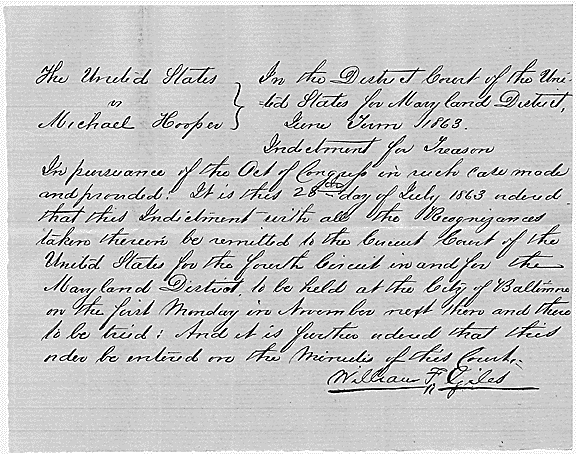 The United States
vs
Michael Hooper
In the District Court of the Uni-
ted States for Maryland District,
June Term 1863.
Indictment for Treason
In pursuance of the Act of Congress in such case made
and provided. It is this 28th day of July 1863 ordered
that this Indictment with all the Recognizances
taken therein be remitted to the Circuit Court of the
United States for the Fourth Circuit in and for the
Maryland District, to be held at the City of Baltimore
on the first Monday in November next then and there
to be tried: And it is further ordered that this
order be entered on the Minutes of this Court.
William F Giles